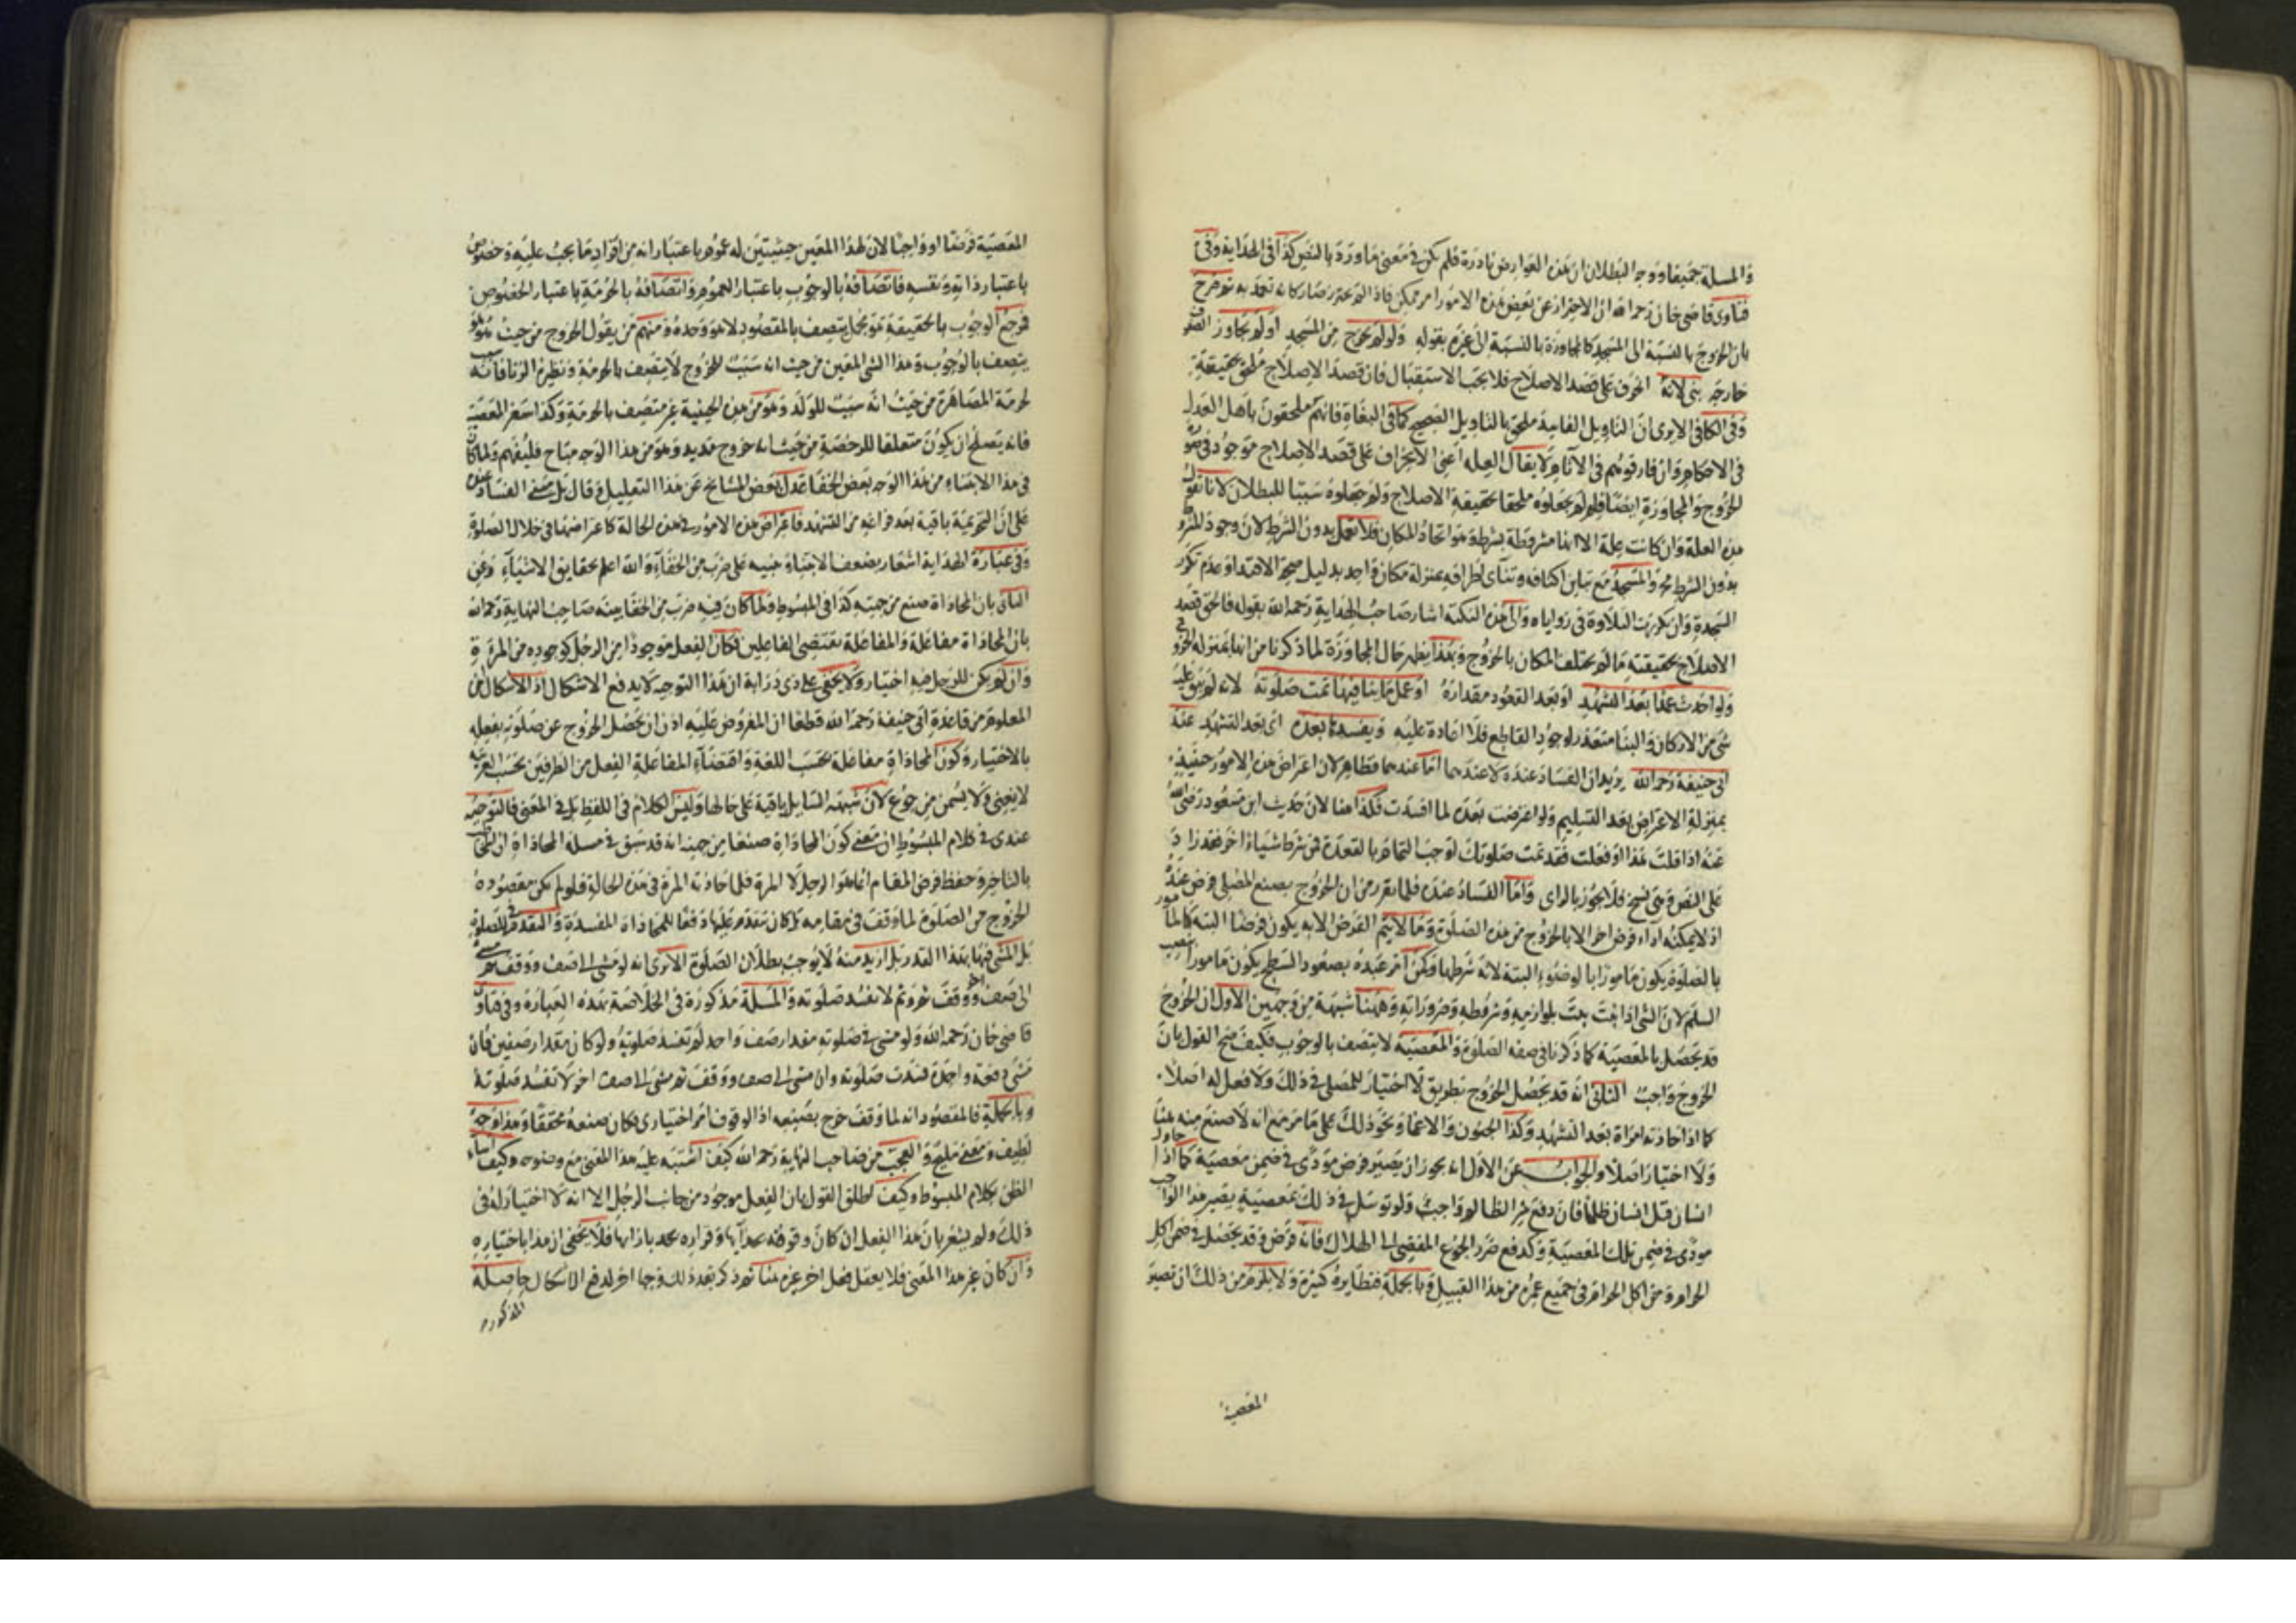 والمسلة جميعا ووجه البطلان ان هذه العوارض نادرة فلم يكن في معنى ما ورد بالنص كذا في الهداية وفي
فتاوى قاضي خان رحمه الله ان الاحتراز عن بعض هذه الامور امر ممكن فاذا لم يحترز صار كانه تعمد به ثم صرح
بان الخروج بالنسبة الى المسجد كالمجاوزة بالنسبة الى غيره بقوله ولو لم يخرج من المسجد او لم يجاوز الصفوف
خارجه بنى لانه انحرف على قصد الاصلاح فلا يجب الاستقبال فان قصد الاصلاح ملحق بحقيقته
وفي الكافي الا يرى ان التاويل الفاسد ملحق بالتاويل الصحيح كما في البغاة فانهم ملحقون باهل العدل
في الاحكام وان فارقوهم في الآثام ولا يقال العلة اعنى الانحراف على قصد الاصلاح موجود في صورة
الخروج والمجاوزة ايضا فلم لم يجعلوه ملحقا بحقيقة الاصلاح ولم جعلوه سببا للبطلان لانا نقول
هذه العلة وان كانت علة الا انها مشروطة بشرط وهو اتحاد المكان فلا تعمل بدون الشرط لان وجود المشروط
بدون الشرط مح والمسجد مع تباين اكنافه وتنائي اطرافه بمنزلة مكان واحد بدليل صحة الاقتداء وعدم تكرر
السجدة وان تكررت التلاوة في زواياه والى هذه النكتة اشار صاحب الهداية رحمه الله بقوله فالحق قصد
الاصلاح بحقيقته ما لم يختلف المكان بالخروج وبهذا يظهر حال المجاوزة لما ذكرنا من انها بمنزلة الخروج
ولو احدث عمدا بعد التشهد او بعد القعود مقداره او عمل ما ينافيها تمت صلوته لانه لم يبق عليه
شئ من الاركان والبنا متعذر لوجود القاطع فلا اعادة عليه ويفسدها بعده اي بعد التشهد عند
ابي حنيفة رحمه الله يريد ان الفساد عنده لا عندهما اما عندهما فظاهر لان اعتراض هذه الامور حينئذ
بمنزلة الاعتراض بعد التسليم ولو اعترضت بعده لما افسدت فكذا هنا لان حديث ابن مسعود رضي الله
عنه اذا قلت هذا او فعلت فقد تمت صلوتك اوجب التمام بالقعدة فمن شرط شيئا آخر فقد زاد
على النص وهي نسخ فلا يجوز بالراى واما الفساد عنده فلما تقرر من ان الخروج بصنع المصلي فرض عنده
اذ لا يمكنه اداء فرض اخر الا بالخروج من هذه الصلوة وما لا يتم الفرض الا به يكون فرضا البتة كالمامور
بالصلوة يكون مامورا بالوضوء البتة لانه شرطها وكمن امر عبده بصعود السطح يكون مامورا بنصب
السلم لان الشئ اذا ثبت يثبت بلوازمه وشروطه وضروراته وههنا شبهة من وجهين الاول ان الخروج
قد يحصل بالمعصية كما ذكرنا في صفة الصلوة والمعصية لا يتصف بالوجوب فكيف صح القول بان
الخروج واجب الثاني انه قد يحصل الخروج بطريق لا اختيار للمصلي في ذلك ولا فعل له اصلا
كما اذا حاذته امراة بعد التشهد وكذا الجنون والاغما ونحو ذلك على ما مر مع انه لا صنع منه هنا
ولا اختيار اصلا والجواب عن الاول انه يجوز ان يصير فرض مودى في ضمن معصية كما اذا حاول
انسان قتل انسان ظلما فان دفع شر الظالم واجب ولو توسل في ذلك بمعصية يصير هذا الواجب
مودى في ضمن تلك المعصية وكدفع ضرر الجوع المفضى الى الهلاك فانه فرض وقد يحصل في ضمن اكل
الحرام ومن اكل الحرام في جميع عمره من هذا القبيل وبالجملة فنظايره كثيرة ولا يلزم من ذلك ان تصير
المعصية
المعصية فرضا او واجبا لان لهذا المعين حيثيتين له عموم باعتبار انه من افراد ما يجب عليه وخصوص
باعتبار ذاته ونفسه فاتصافه بالوجوب باعتبار العموم واتصافه بالحرمة باعتبار الخصوص
فرجع الوجوب بالحقيقة هو بجعل يتصف بالمقصود لا هو وحده ومنهم من يقول الخروج من حيث هو هو
يتصف بالوجوب وهذا الشئ المعين من حيث انه سبب للخروج لا يتصف بالحرمة ونظيره الزنا فانه سبب
لحرمة المصاهرة من حيث انه سبب للولد وهو من هذه الحيثية غير متصف بالحرمة وكذا سفر المعصية
فانه يصلح ان يكون متعلقا للرخصة من حيث انه خروج مديد وهو من هذا الوجه مباح فليفهم ولما كان
في هذا الابتناء من هذا الوجه بعض الخفا عدل بعض المشايخ عن هذا التعليل وقال بل مبنى الفساد عنده
على ان التحريمة باقية بعد فراغه من التشهد فاعتراض هذه الامور في هذه الحالة كاعتراضها في خلال الصلوة
وفي عبارة الهداية اشعار بضعف الابتناء مبنيه على ضرب من الخفاء والله اعلم بحقايق الاشياء وعن
الثاني بان المحاذاة صنع من جهته كذا في المبسوط ولما كان فيه ضرب من الخفا بينه صاحب النهاية رحمه الله
بان المحاذاة مفاعلة والمفاعلة يقتضى الفاعلين فكان الفعل موجودا من الرجل كوجوده من المرءة
وان لم يكن للرجل فيه اختيار ولا يخفى على ذي دراية ان هذا التوجيه لا يدفع الاشكال اذ الاشكال ان
المعلوم من قاعدة ابي حنيفة رحمه الله قطعا ان المفروض عليه اذن ان يحصل الخروج عن صلوته بفعله
بالاختيار وكون المحاذاة مفاعلة بحسب اللغة واقتضاء المفاعلة الفعل من الطرفين بحسب العربية
لا يغنى ولا يسمن من جوع لان شبهة السايل باقية على حالها وليس الكلام في اللفظ بل في المعنى فالتوجيه
عندى في كلام المبسوط ان معنى كون المحاذاة صنعا من جهته انه قد سبق في مسلة المحاذاة ان
بالتاخير وحفظ فرض المقام انما هو الرجل لا المرة فلما حاذته المرة في هذه الحالة فلو لم يكن مقصوده
الخروج من الصلوة لما وقف في مقامه بل كان تقدم عليها دفعا للمحاذاة المفسدة والتقدم في الصلوة
بل المشى فيها بهذا القدر بل ازيد منه لا يوجب بطلان الصلوة الا يرى انه لو مشى الى صف ووقف ثم مشى
الى صف آخر ووقف ثم وثم لا تفسد صلوته والمسلة مذكورة في الخلاصة بهذه العبارة وفي فتاوى
قاضي خان رحمه الله ولو مشى في صلوته مقدار صف واحد لم تفسد صلوته ولو كان مقدار صفين فان
مشى دفعة واحدة فسدت صلوته وان مشى الى صف ووقف ثم مشى الى صف اخر لا تفسد صلوته
وبالجملة فالمقصود انه لما وقف خرج بصنعه اذ الوقوف امر اختيارى فكان صنعه محققا وهذا وجه
لطيف ومعنى مليح والعجب من صاحب النهاية رحمه الله كيف اشتبه عليه هذا المعنى مع وضوحه وكيف اساء
الظن بكلام المبسوط وكيف اطلق القول بان الفعل موجود من جانب الرجل الا انه لا اختيار له في
ذلك ولم يشعر بان هذا الفعل ان كان وقوفه بحذائها وقراره بازائها فلا يخفى ان هذا باختياره
وان كان غير هذا المعنى فلا يعقل فعل اخر غيره هنا ثم ذكر بعد ذلك وجها اخر لدفع الاشكال حاصله
المذكوره